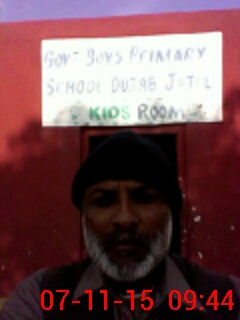 GOVT BOYS PRIMARY
SCHOOL
KIDS ROOM
07-11-15 09:44